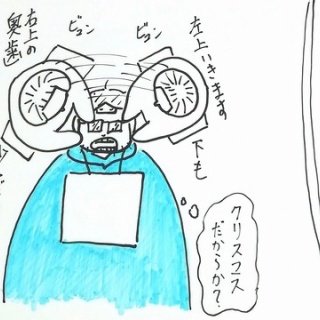 左上いきます
下も
ビュン
ビュン
右上の
奥歯
クリスマス
だからか?